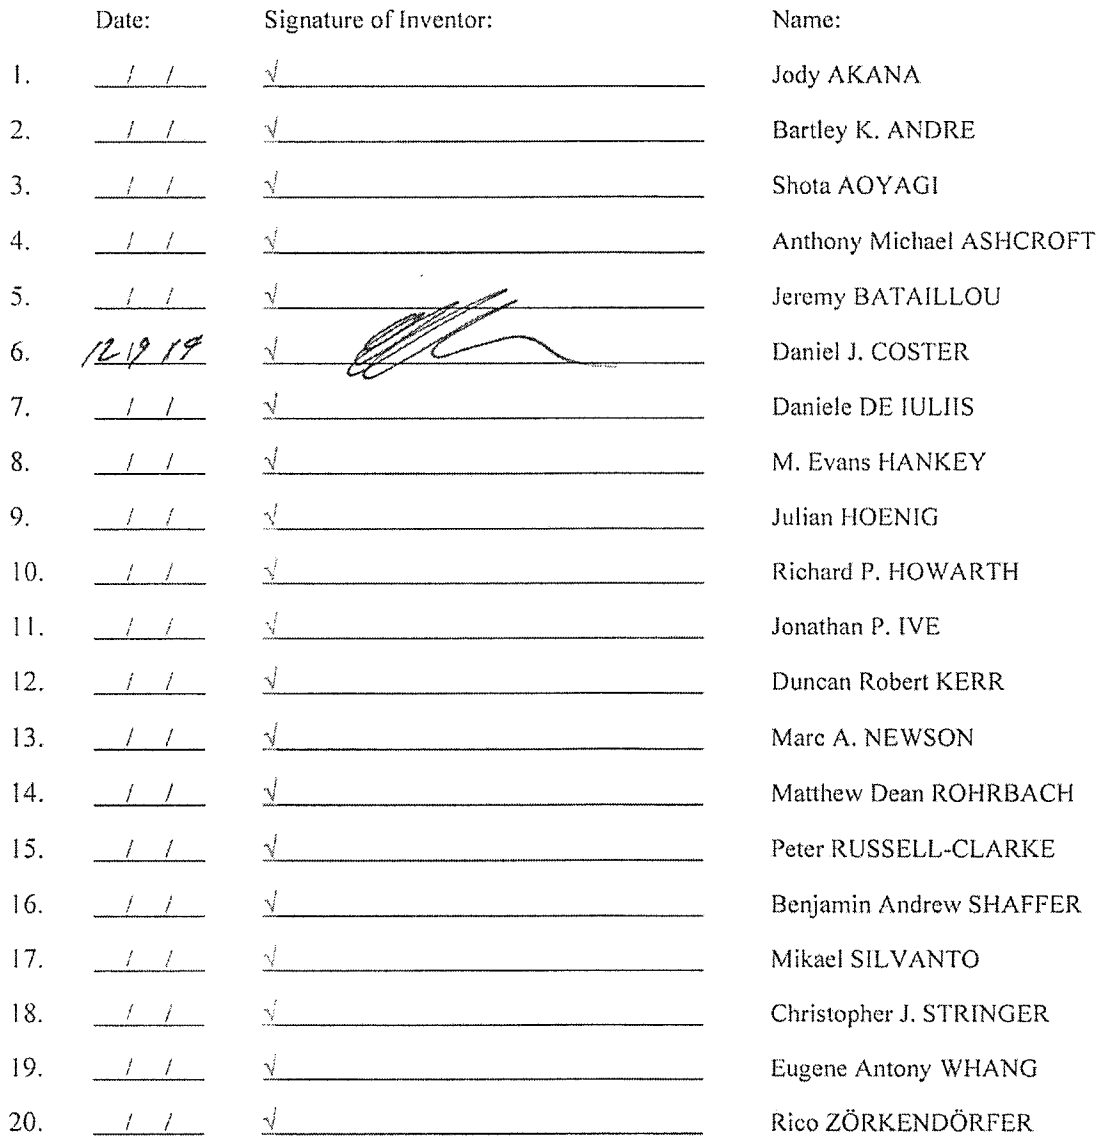 Date: Signature of Inventor: Name:
1. / / √ Jody AKANA
2. / / √ Bartley K. ANDRE
3. / / √ Shota AOYAGI
4. / / √ Anthony Michael ASHCROFT
5. / / √ Jeremy BATAILLOU
6. 12/9/19 √ Daniel J. COSTER
7. / / √ Daniele DE IULIIS
8. / / √ M. Evans HANKEY
9. / / √ Julian HOENIG
10. / / √ Richard P. HOWARTH
11. / / √ Jonathan P. IVE
12. / / √ Duncan Robert KERR
13. / / √ Marc A. NEWSON
14. / / √ Matthew Dean ROHRBACH
15. / / √ Peter RUSSELL-CLARKE
16. / / √ Benjamin Andrew SHAFFER
17. / / √ Mikael SILVANTO
18. / / √ Christopher J. STRINGER
19. / / √ Eugene Antony WHANG
20. / / √ Rico ZÖRKENDÖRFER